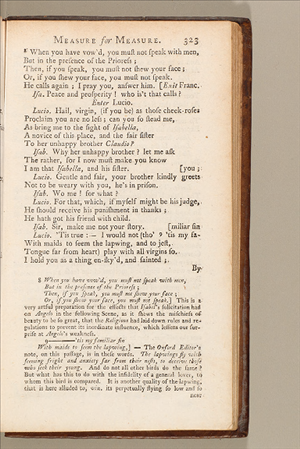 MEASURE for MEASURE. 323
8 When you have vow'd, you muſt not ſpeak with men,
But in the preſence of the Prioreſs;
Then, if you ſpeak, you muſt not ſhew your face;
Or, if you ſhew your face, you muſt not ſpeak.
He calls again; I pray you, anſwer him. [Exit Franc.
Iſa. Peace and proſperity! who is't that calls?
Enter Lucio.
Lucio. Hail, virgin, (if you be) as thoſe cheek-roſes
Proclaim you are no leſs; can you ſo ſtead me,
As bring me to the ſight of Iſabella,
A novice of this place, and the fair ſiſter
To her unhappy brother Claudio?
Iſab. Why her unhappy brother? let me aſk
The rather, for I now muſt make you know
I am that Iſabella, and his ſiſter. [you;
Lucio. Gentle and fair, your brother kindly greets
Not to be weary with you, he's in priſon.
Iſab. Wo me! for what?
Lucio. For that, which, if myſelf might be his judge,
He ſhould receive his puniſhment in thanks;
He hath got his friend with child.
Iſab. Sir, make me not your ſtory. [miliar ſin
Lucio. 'Tis true:— I would not (tho' 9 'tis my fa-
With maids to ſeem the lapwing, and to jeſt,
Tongue far from heart) play with all virgins ſo.
I hold you as a thing en-ſky'd, and ſainted;
By
8 When you have vow'd, you muſt not ſpeak with men,
But in the preſence of the Prioreſs;
Then, if you ſpeak, you muſt not ſhew your face;
Or, if you ſhew your face, you muſt not ſpeak.] This is a
very artful preparation for the effects that Iſabel's ſolicitation had
on Angelo in the following Scene, as it ſhews the miſchiefs of
beauty to be ſo great, that the Religious had laid down rules and re-
gulations to prevent its inordinate influence, which leſſens our ſur-
priſe at Angelo's weakneſs.
9 ———'tis my familiar ſin
With maids to ſeem the lapwing,] — The Oxford Editor's
note, on this paſſage, is in theſe words. The lapwings fly with
ſeeming fright and anxiety far from their neſts, to deceive thoſe
who ſeek their young. And do not all other birds do the ſame?
But what has this to do with the infidelity of a general lover, to
whom this bird is compared. It is another quality of the lapwing,
that is here alluded to, viz. its perpetually flying ſo low and ſo